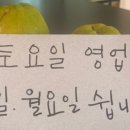 토요일 영업
일.월요일 쉽니